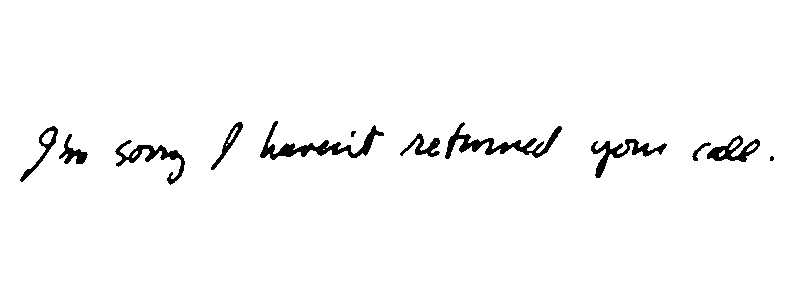 I'm sorry I haven't returned your call.